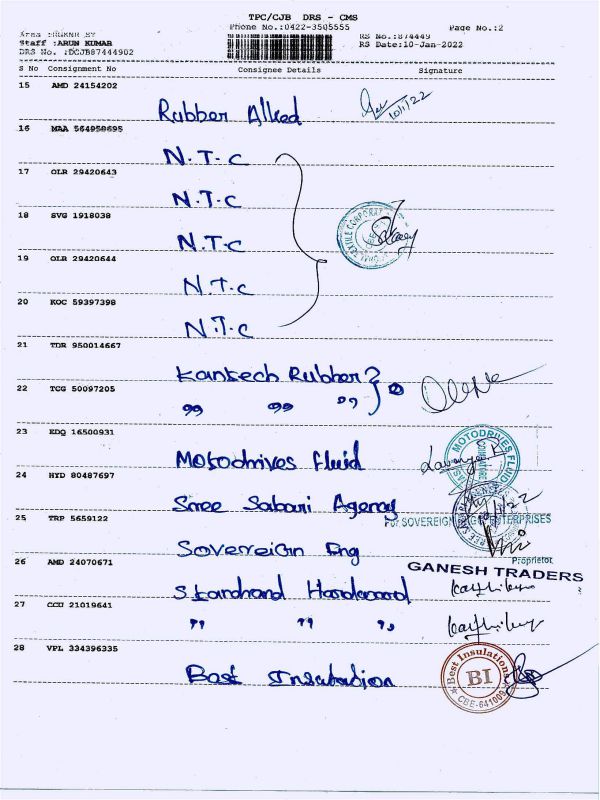 TPC/CJB DRS - CMS
Phone No.:0422-3505555
Page No.:2
Staff :ARUN KUMAR
RS No.:874449
DRS No. :DCJB87444902
RS Date:10-Jan-2022
S No Consignment No Consignee Details Signature
15 AMD 24154202
Rubber Allied
10/1/22
16 MAA 564958695
N.T.C
17 OLR 29420643
N.T.C
18 SVG 1918038
N.T.C
19 OLR 29420644
N.T.C
20 KOC 59397398
N.T.C
21 TDR 950014667
Kantech Rubber
22 TCG 50097205
" " " 2
23 EDQ 16500931
Motodrives Fluid
MOTODRIVES FLUID
24 HYD 80487697
Sree Sabari Agency
For SOVEREIGN ENTERPRISES
25 TRP 5659122
Sovereign Eng
Proprietor
26 AMD 24070671
GANESH TRADERS
Standrand Hardward
27 CCU 21019641
" " "
28 VPL 334396335
Best Insulation
Best Insulation
BI
CBE-641009